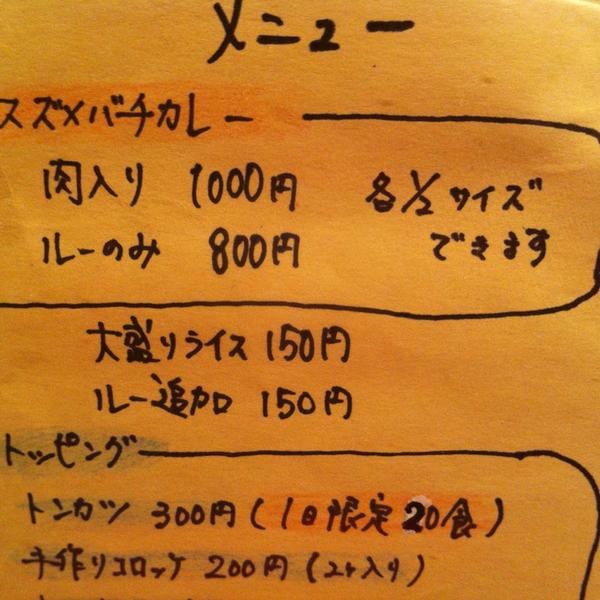 メニュー
スズメバチカレー
肉入り 1000円 各1/2サイズ
ルーのみ 800円 できます
大盛りライス 150円
ルー追加 150円
トッピング
トンカツ 300円 (1日限定20食)
手作りコロッケ 200円 (2ケ入り)